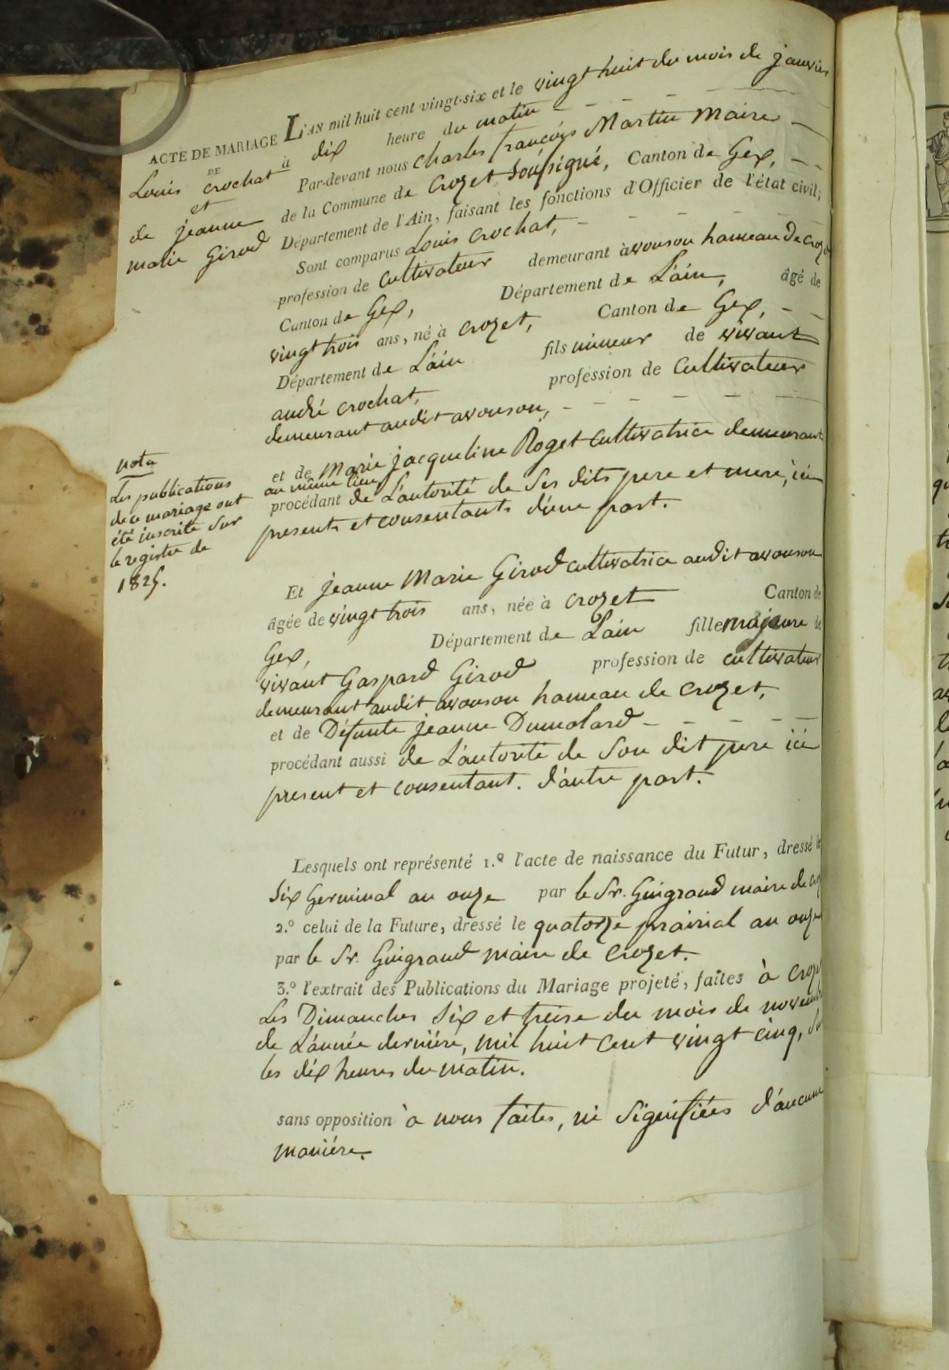 ACTE DE MARIAGE
DE
Louis crochat
et
de jeanne
marie Girod
L'AN mil huit cent vingt-six et le vingt huit du mois de janvier
à dix heure du matin
Par-devant nous Charles françois Martin Maire
de la Commune de Crozet Soussigné, Canton de Gex,
Département de l'Ain, faisant les fonctions d'Officier de l'état civil;
Sont comparus Louis Crochat,
profession de Cultivateur demeurant à avouson hameau de Crozet
Canton de Gex, Département de L'ain, âgé de
vingt trois ans, né à Crozet, Canton de Gex,
Département de L'ain fils mineur de vivant
andré Crochat, profession de Cultivateur
demeurant audit avouson,
et de Marie jacqueline Roget Cultivatrice demeurant
au même lieu
procédant de L'autorité de Ses dits pere et mere, ici
presents et consentants d'une part.
nota
Les publications
de ce mariage ont
été inscrite Sur
le registre de
1825.
Et jeanne Marie Girod cultivatrice audit avouson
âgée de vingt trois ans, née à Crozet Canton de
Gex, Département de L'ain fille majeure de
vivant Gaspard Girod profession de cultivateur
demeurant audit avouson hameau de Crozet,
et de Défunte jeanne Dumolard
procédant aussi de L'autorité de Son dit pere ici
present et consentant. d'autre part.
Lesquels ont représenté 1.º l'acte de naissance du Futur, dressé le
Six Germinal an onze par le Sr. Guigrand maire de
2.º celui de la Future, dressé le quatorze prairial an onze
par le Sr. Guigrand maire de Crozet.
3.º l'extrait des Publications du Mariage projeté, faites à Crozet
Les Dimanches Six et treize du mois de novembre
de L'année derniére, mil huit cent vingt cinq,
les dix heures du matin.
sans opposition à nous faites, ni Signifiées d'aucune
maniére.